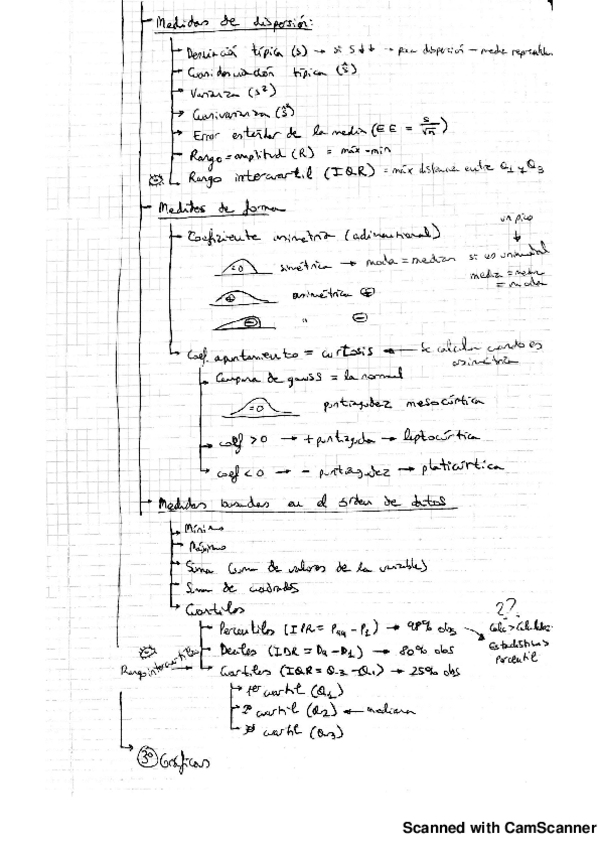 Medidas de dispersión:
Desviación típica (s) → si s↓↓ → poca dispersión → media representativa
Cuasidesviación típica (ŝ)
Varianza (s²)
Cuasivarianza (ŝ)
Error estándar de la media (EE = s/√n)
Rango = amplitud (R) = máx - min
Rango intercuartil (IQR) = máx distancia entre Q1 y Q3
Medidas de forma
un pico
Coeficiente asimetría (adimensional)
=0 simétrica → moda = mediana si es unimodal
media = = moda
⊕ asimétrica ⊕
⊖ " ⊖
Coef. apuntamiento = curtosis ← se calcula cuando es
simétrica
Campana de gauss = la normal
=0 puntiagudez mesocúrtica
coef > 0 → + puntiaguda → leptocúrtica
coef < 0 → - puntiagudez → platicúrtica
Medidas basadas en el orden de datos
Mínimo
Máximo
Suma (suma de valores de la variable)
Suma de cuadrados
Cuantilos
Percentiles (IPR = P99 - P1) → 98% obs
2?
Estadísticos
percentil
Deciles (IDR = D9 - D1) → 80% obs
Rango intercuartílico → Cuartiles (IQR = Q3 - Q1) → 25% obs
1er cuartil (Q1)
2º cuartil (Q2) ← mediana
3º cuartil (Q3)
3º Gráficas
Scanned with CamScanner